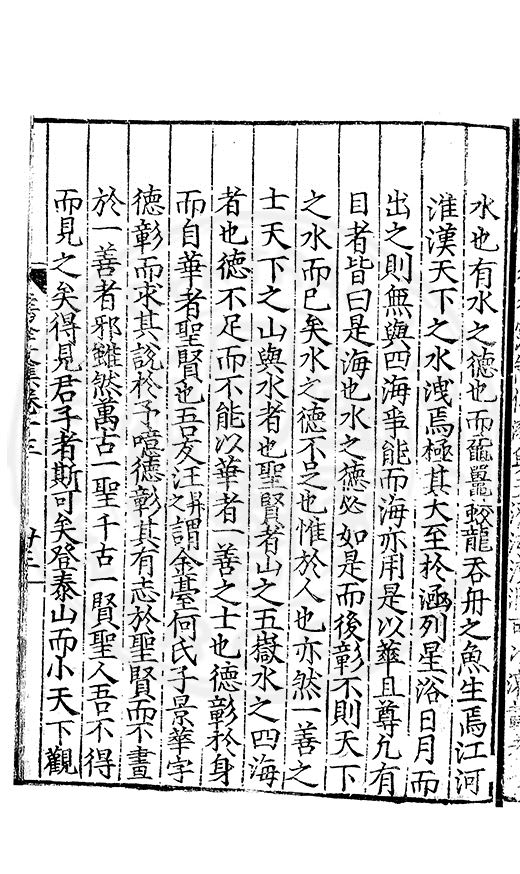 水也有水之德也而黿鼉蛟龍吞舟之魚生焉江河
淮漢天下之水洩焉極其大至於涵列星浴日月而
出之則無與四海爭能而海亦用是以華且尊凢有
目者皆曰是海也水之德必如是而後彰不則天下
之水而已矣水之德不足也惟於人也亦然一善之
士天下之山與水者也聖賢者山之五嶽水之四海
者也德不足而不能以華者一善之士也德彰於身
而自華者聖賢也吾友汪之謂余䑓何氏子景華字
德彰而求其說於予噫德彰其有志於聖賢而不畫
於一善者邪雖然萬古一聖千古一賢聖人吾不得
而見之矣得見君子者斯可矣登泰山而小天下觀